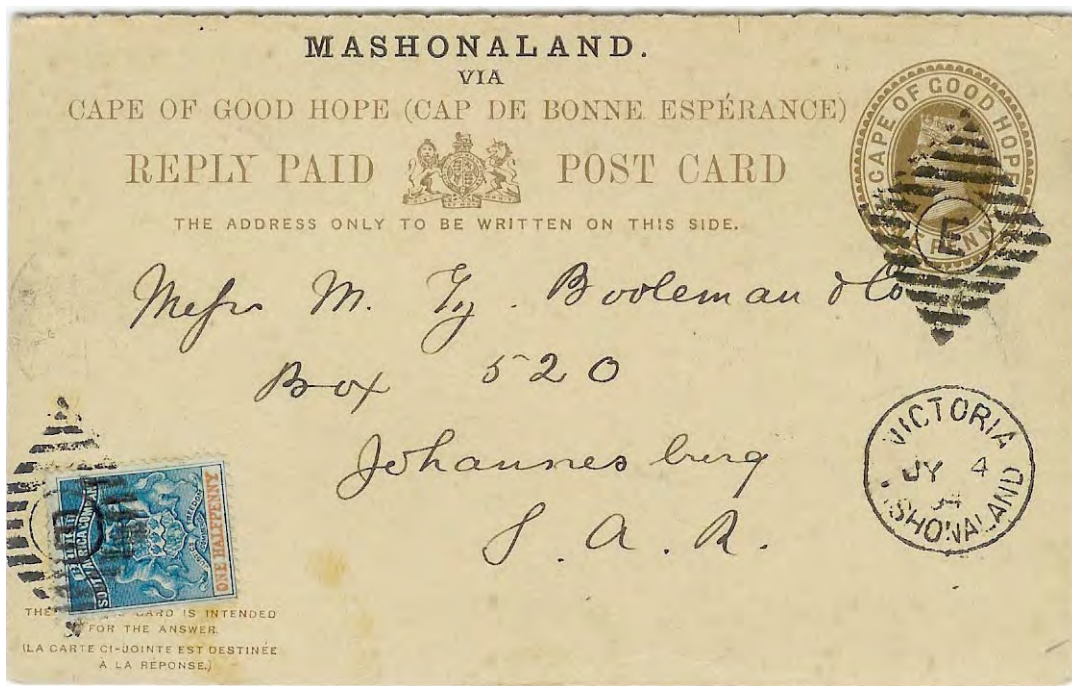 MASHONALAND.
VIA
CAPE OF GOOD HOPE (CAP DE BONNE ESPÉRANCE)
REPLY PAID POST CARD
THE ADDRESS ONLY TO BE WRITTEN ON THIS SIDE.
CAPE OF GOOD HOPE
PENNY
E
Messrs M. Booleman & Co
Box 520
Johannesburg
S. A. R.
VICTORIA
JY 4
94
SHONALAND
SOUTH AFRICA COMPANY
ONE HALFPENNY
THE CARD IS INTENDED
FOR THE ANSWER.
(LA CARTE CI-JOINTE EST DESTINÉE
A LA RÉPONSE.)